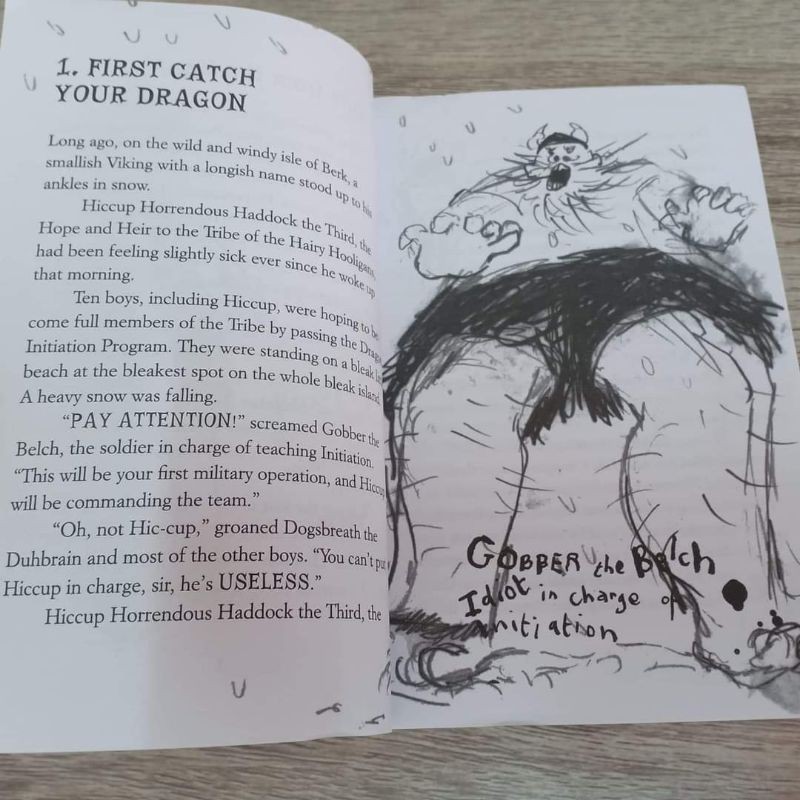 1. FIRST CATCH
YOUR DRAGON
Long ago, on the wild and windy isle of Berk, a
smallish Viking with a longish name stood up to his
ankles in snow.
Hiccup Horrendous Haddock the Third, the
Hope and Heir to the Tribe of the Hairy Hooligans,
had been feeling slightly sick ever since he woke up
that morning.
Ten boys, including Hiccup, were hoping to be
come full members of the Tribe by passing the
Initiation Program. They were standing on a bleak
beach at the bleakest spot on the whole bleak island.
A heavy snow was falling.
"PAY ATTENTION!" screamed Gobber the
Belch, the soldier in charge of teaching Initiation.
"This will be your first military operation, and
will be commanding the team."
"Oh, not Hic-cup," groaned Dogsbreath the
Duhbrain and most of the other boys. "You can't put
Hiccup in charge, sir, he's USELESS."
Hiccup Horrendous Haddock the Third, the
GOBBER the Belch
Idiot in charge of
initiation